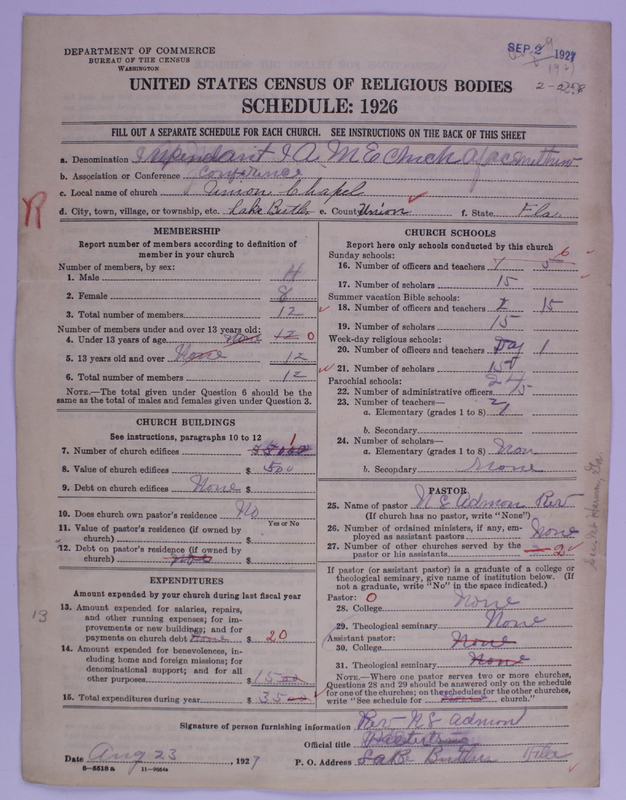 DEPARTMENT OF COMMERCE
BUREAU OF THE CENSUS
WASHINGTON
SEP 2 1927
UNITED STATES CENSUS OF RELIGIOUS BODIES
SCHEDULE: 1926
FILL OUT A SEPARATE SCHEDULE FOR EACH CHURCH. SEE INSTRUCTIONS ON THE BACK OF THIS SHEET
a. Denomination
b. Association or Conference Conference
c. Local name of church Union Chapel
d. City, town, village, or township, etc. Lake Butler e. County Union f. State Fla
R
MEMBERSHIP
Report number of members according to definition of
member in your church
Number of members, by sex:
1. Male 4
2. Female 8
3. Total number of members 12
Number of members under and over 13 years old:
4. Under 13 years of age None 12 0
5. 13 years old and over None 12
6. Total number of members 12
NOTE.—The total given under Question 6 should be the
same as the total of males and females given under Question 3.
CHURCH BUILDINGS
See instructions, paragraphs 10 to 12
7. Number of church edifices 1
8. Value of church edifices $ 500
9. Debt on church edifices None $
10. Does church own pastor's residence No
Yes or No
11. Value of pastor's residence (if owned by
church) $
12. Debt on pastor's residence (if owned by
church) $
EXPENDITURES
Amount expended by your church during last fiscal year
13. Amount expended for salaries, repairs,
and other running expenses; for im-
provements or new buildings; and for
payments on church debt None $ 20
14. Amount expended for benevolences, in-
cluding home and foreign missions; for
denominational support; and for all
other purposes $ 15
15. Total expenditures during year $ 35
13
CHURCH SCHOOLS
Report here only schools conducted by this church
Sunday schools:
16. Number of officers and teachers 7 5 6
17. Number of scholars 15
Summer vacation Bible schools:
18. Number of officers and teachers 15
19. Number of scholars 15
Week-day religious schools:
20. Number of officers and teachers Day 1
21. Number of scholars
Parochial schools:
22. Number of administrative officers
23. Number of teachers—
a. Elementary (grades 1 to 8)
b. Secondary
24. Number of scholars—
a. Elementary (grades 1 to 8) Non
b. Secondary None
PASTOR
25. Name of pastor N S Admon Rev
(If church has no pastor, write "None")
26. Number of ordained ministers, if any, em-
ployed as assistant pastors None
27. Number of other churches served by the
pastor or his assistants 2
If pastor (or assistant pastor) is a graduate of a college or
theological seminary, give name of institution below. (If
not a graduate, write "No" in the space indicated.)
Pastor: 0
28. College None
29. Theological seminary None
Assistant pastor:
30. College None
31. Theological seminary None
NOTE.—Where one pastor serves two or more churches,
Questions 28 and 29 should be answered only on the schedule
for one of the churches; on the schedules for the other churches,
write "See schedule for church."
Signature of person furnishing information Rev N S Admon
Official title
Date Aug 23, 1927 P. O. Address Lake Butler Fla
6—5518a 11—9664a